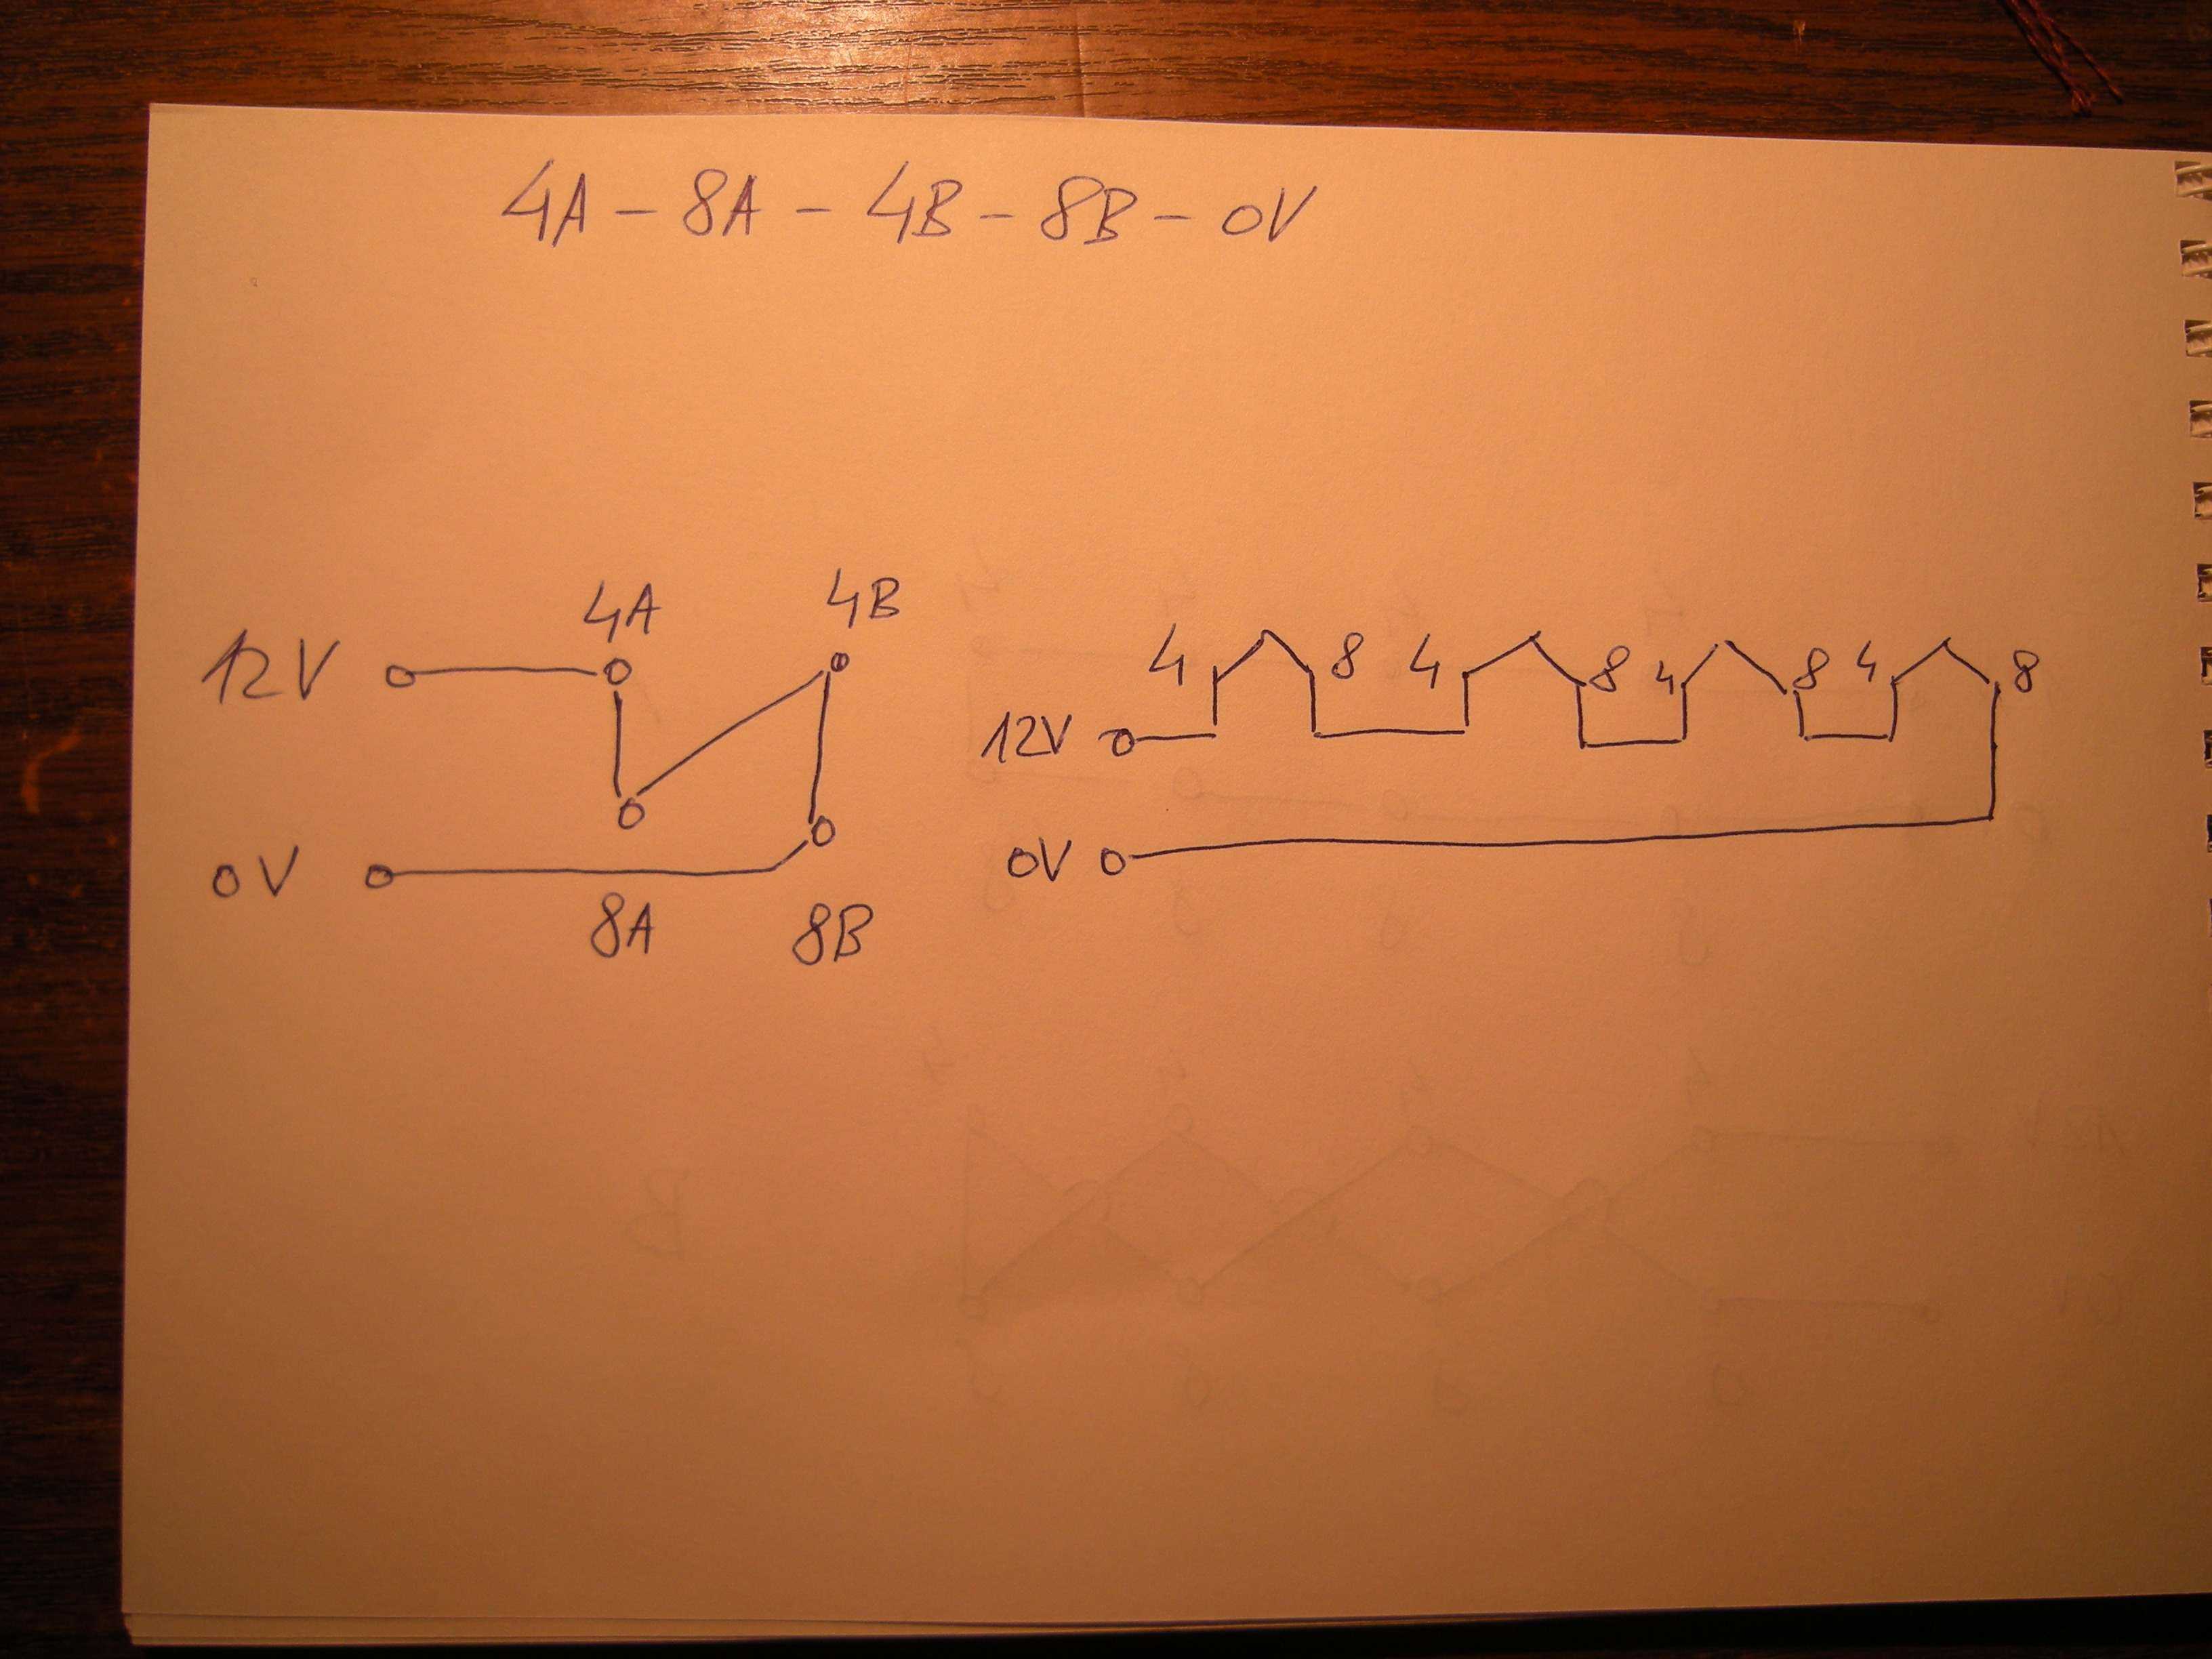 4A - 8A - 4B - 8B - 0V
4A 4B
12V
0V
8A 8B
4 8 4 8 4 8 4 8
12V
0V